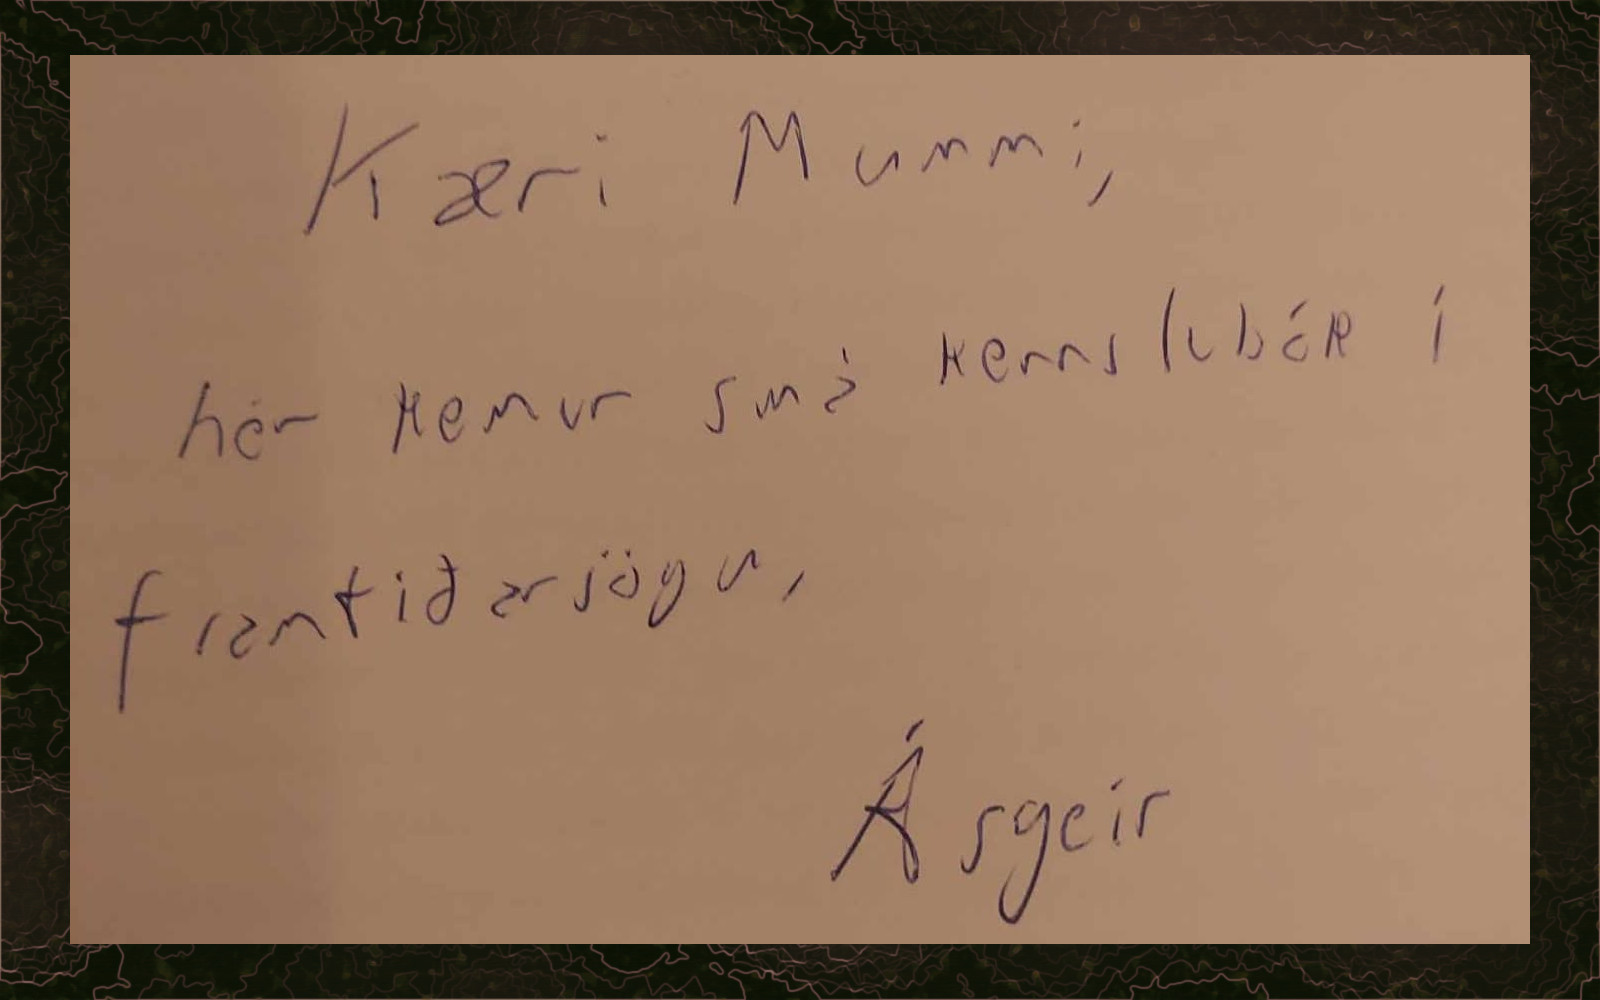 Kæri Mummi,
hér kemur smá kennslubók í
framtíðarsögu,
Ásgeir